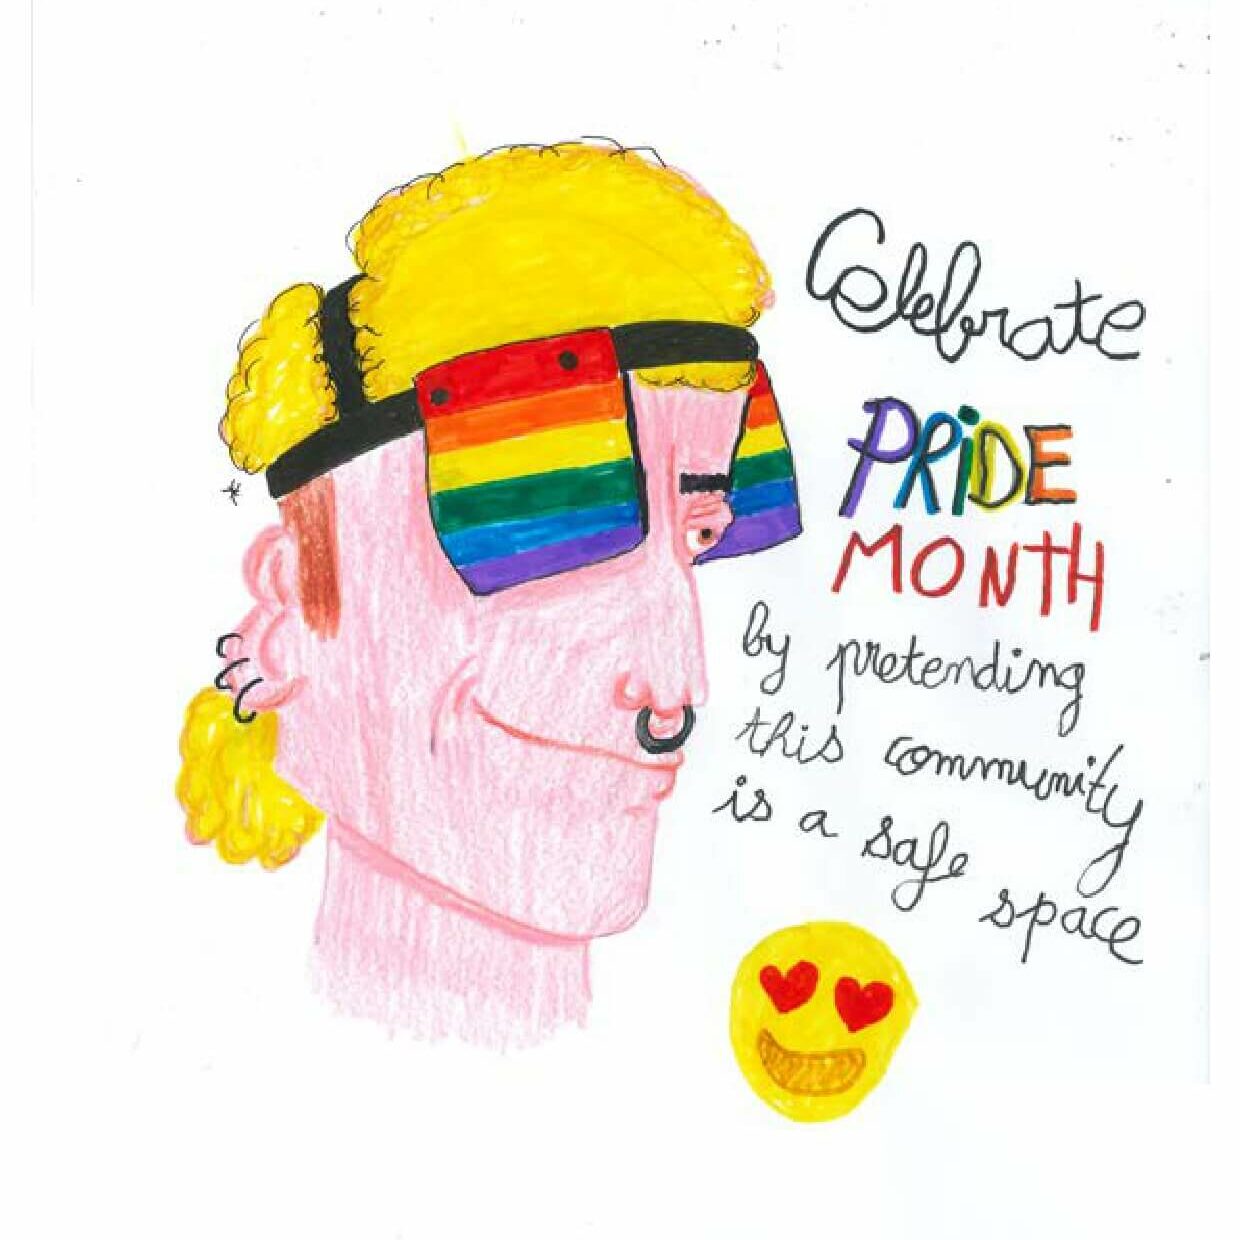 Celebrate
PRiDE
MONTH
by pretending
this community
is a safe
space